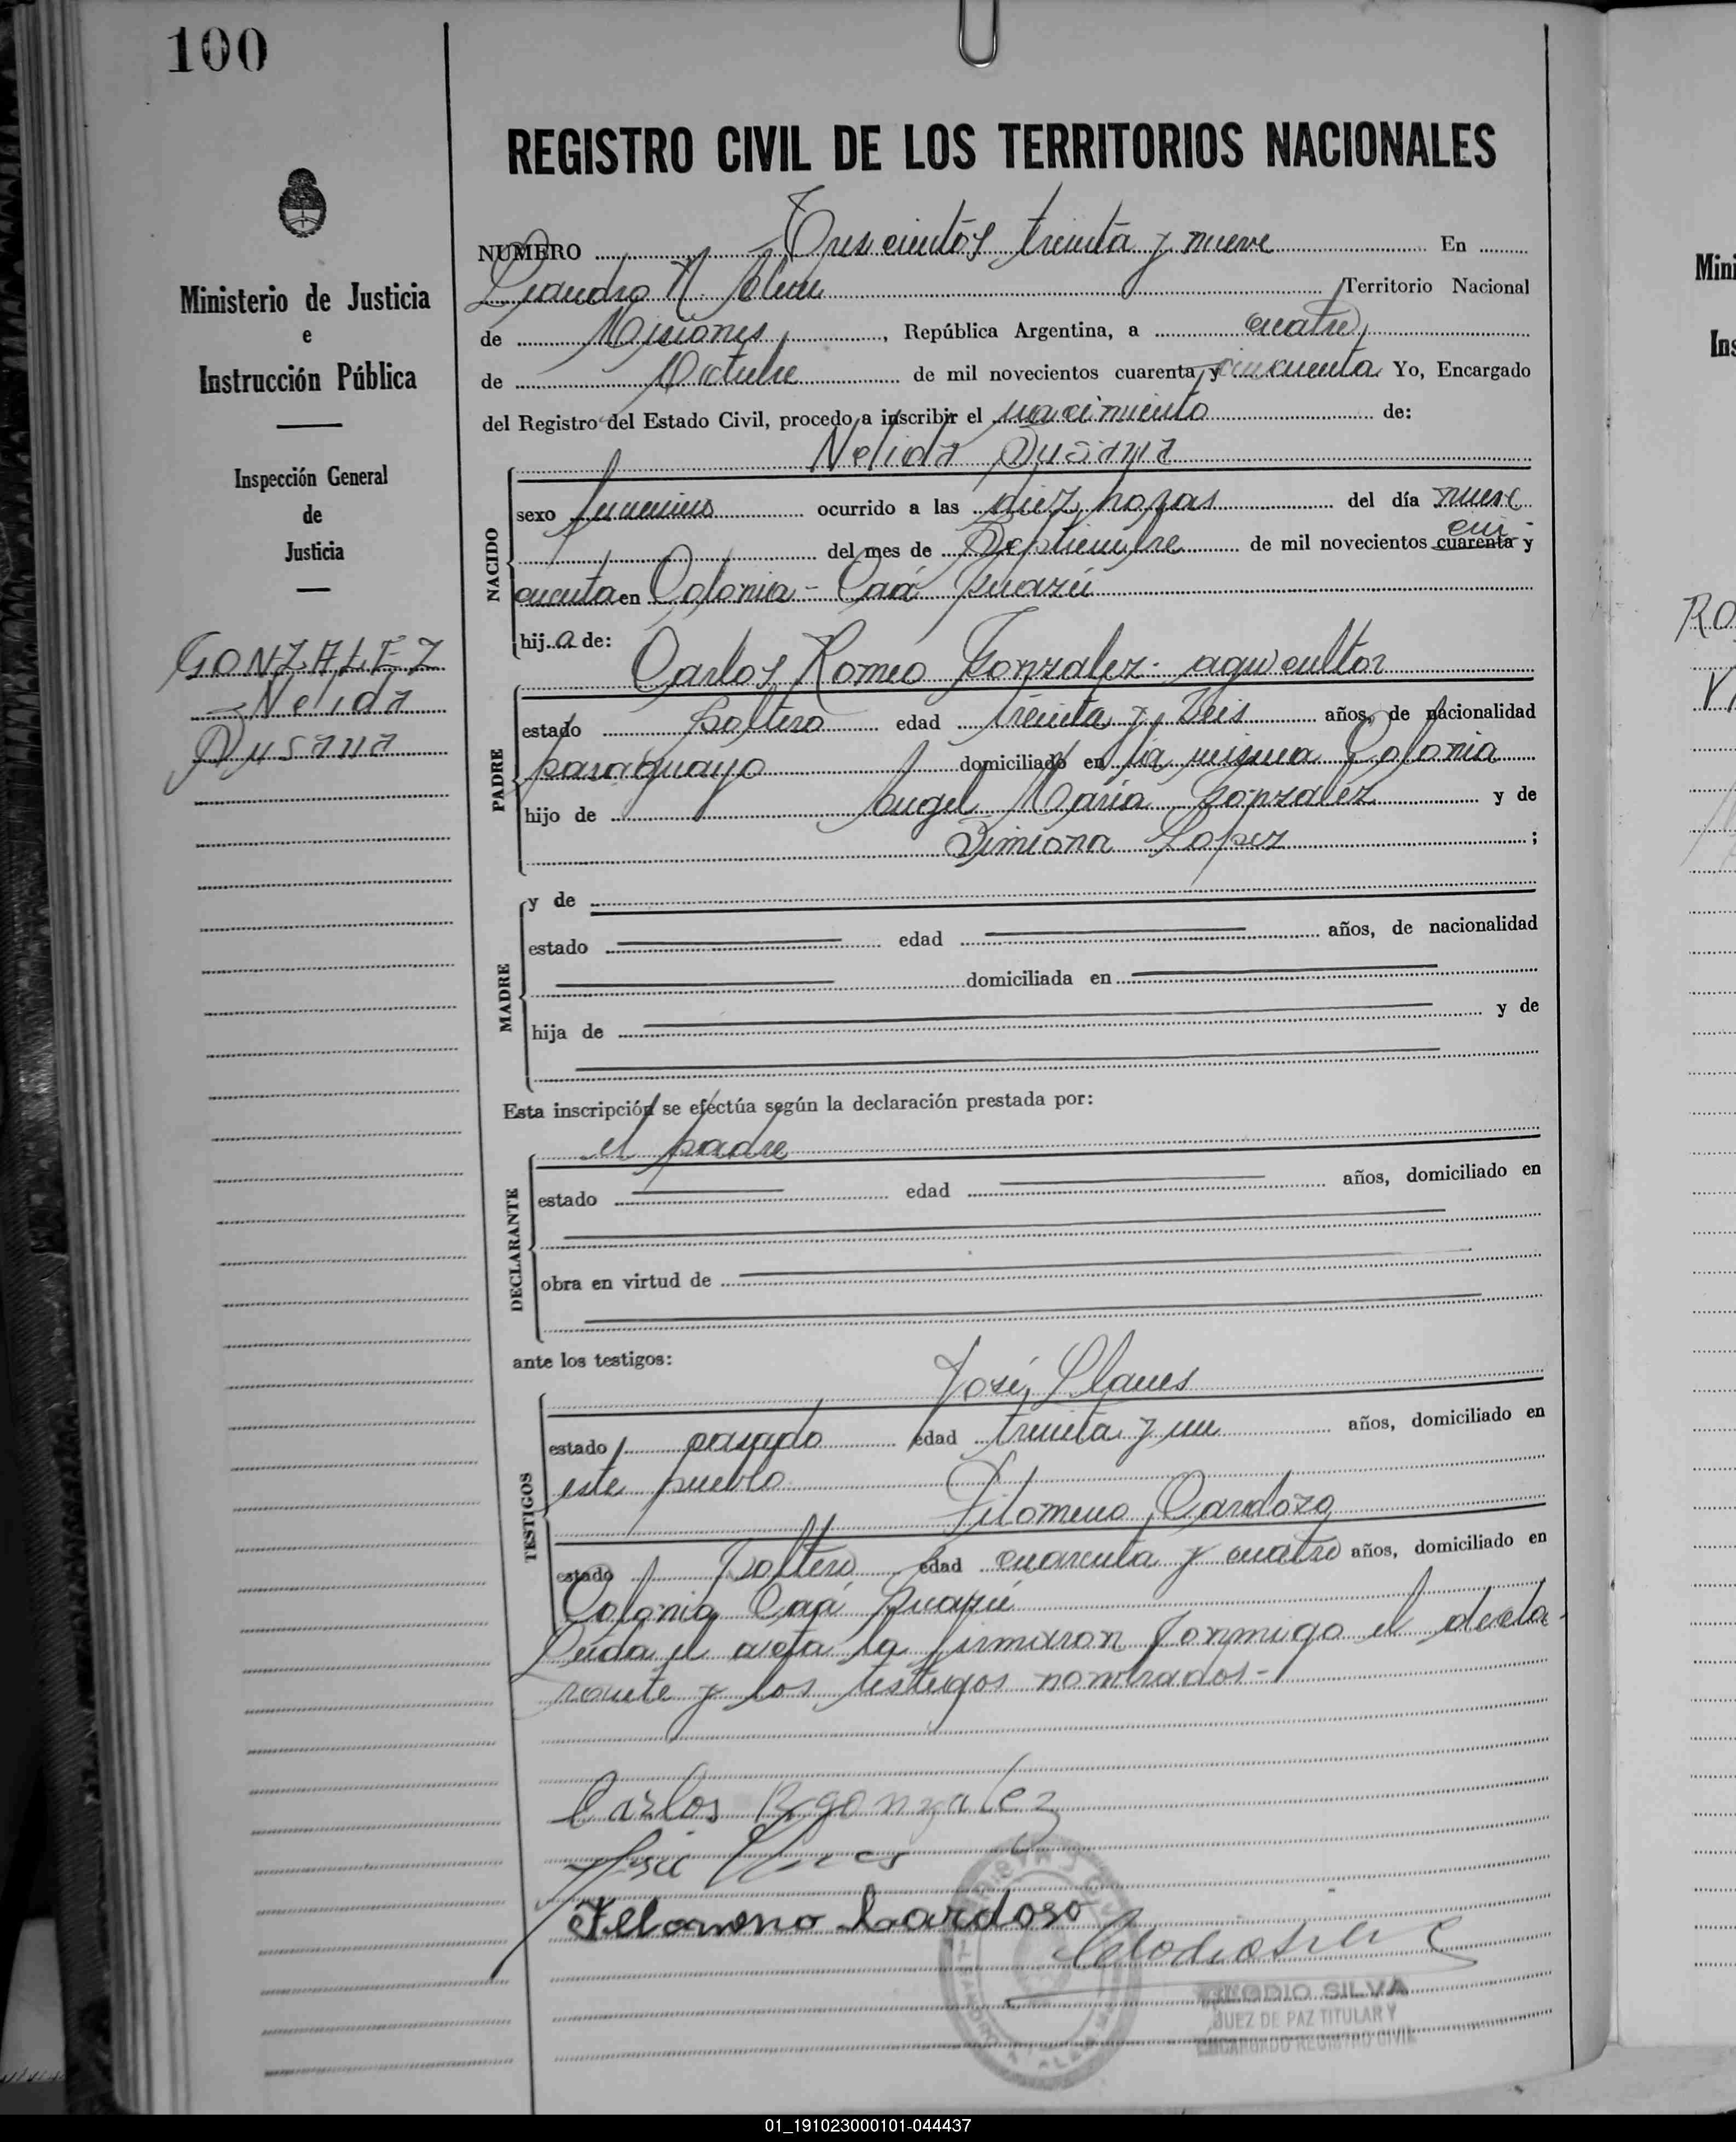 100
REGISTRO CIVIL DE LOS TERRITORIOS NACIONALES
Ministerio de Justicia
e
Instrucción Pública
Inspección General
de
Justicia
GONZALEZ
Nelida
Susana
NUMERO Trescientos treinta y nueve En
Leandro N. Alem Territorio Nacional
de Misiones, República Argentina, a cuatro
de Octubre de mil novecientos cuarenta y cincuenta Yo, Encargado
del Registro del Estado Civil, procedo a inscribir el nacimiento de:
Nelida Susana
NACIDO
sexo femenino ocurrido a las diez horas del día nueve
del mes de Septiembre de mil novecientos cuarenta y cin-
cuenta en Colonia - Caá Guazú
hij a de:
Carlos Romeo Gonzalez - agricultor
PADRE
estado soltero edad treinta y seis años, de nacionalidad
paraguayo domiciliado en la misma Colonia
hijo de Angel Maria Gonzalez y de
Simeona Lopez ;
MADRE
y de
estado edad años, de nacionalidad
domiciliada en
hija de y de
Esta inscripción se efectúa según la declaración prestada por:
el padre
DECLARANTE
estado edad años, domiciliado en
obra en virtud de
ante los testigos:
José Llanes
TESTIGOS
estado casado edad treinta y un años, domiciliado en
este pueblo
Filomeno Cardozo
estado soltero edad cuarenta y cuatro años, domiciliado en
Colonia Caá Guazú
Leida el acta la firmaron conmigo el decla-
rante y los testigos nombrados-
Carlos R gonzalez
José Llanes
Filomeno Cardoso
Clodio Silva
CLODIO SILVA
JUEZ DE PAZ TITULAR Y
ENCARGADO REGISTRO CIVIL
Mini
Ins
RO
01_191023000101-044437